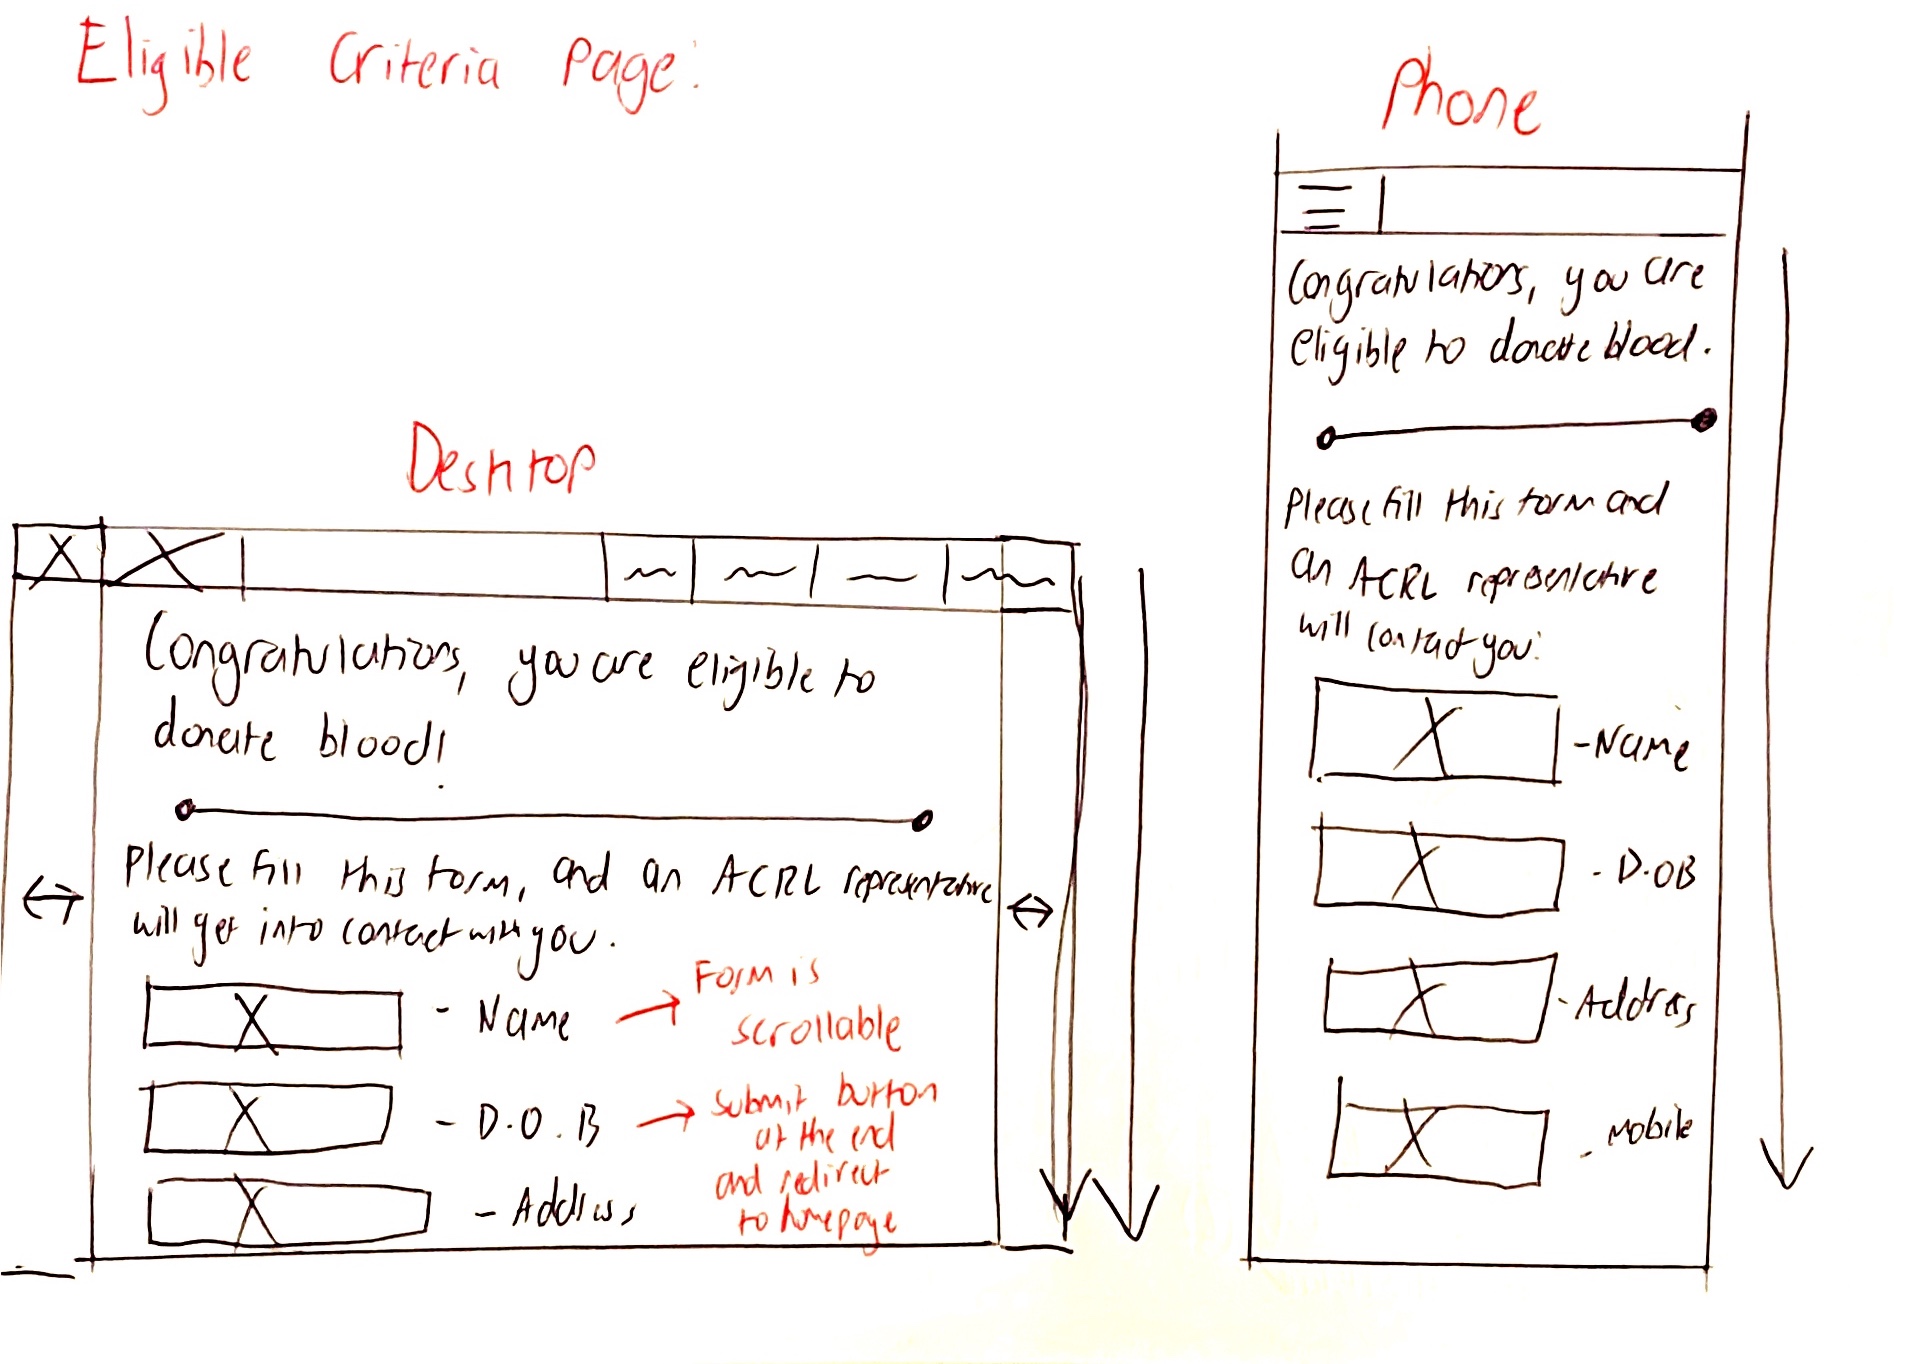 Eligible Criteria Page:
Desktop
Congratulations, you are eligible to
donate blood!
Please fill this form, and an ACRL representative
will get into contact with you.
- Name → Form is
scrollable
- D.O.B → Submit button
at the end
and redirect
to homepage
- Address
Phone
Congratulations, you are
eligible to donate blood.
Please fill this form and
an ACRL representative
will contact you:
- Name
- D.OB
- Address
- Mobile